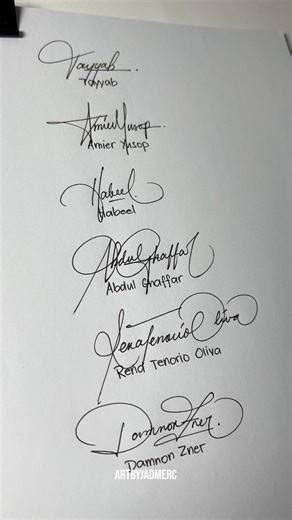 Tayyab
Tayyab
Amier Yusop
Amier Yusop
Habeel
Habeel
Abdul Ghaffar
Abdul Ghaffar
Rena Tenorio Oliva
Rena Tenorio Oliva
Damnon Zner
Damnon Zner
ARTBYJADMERC